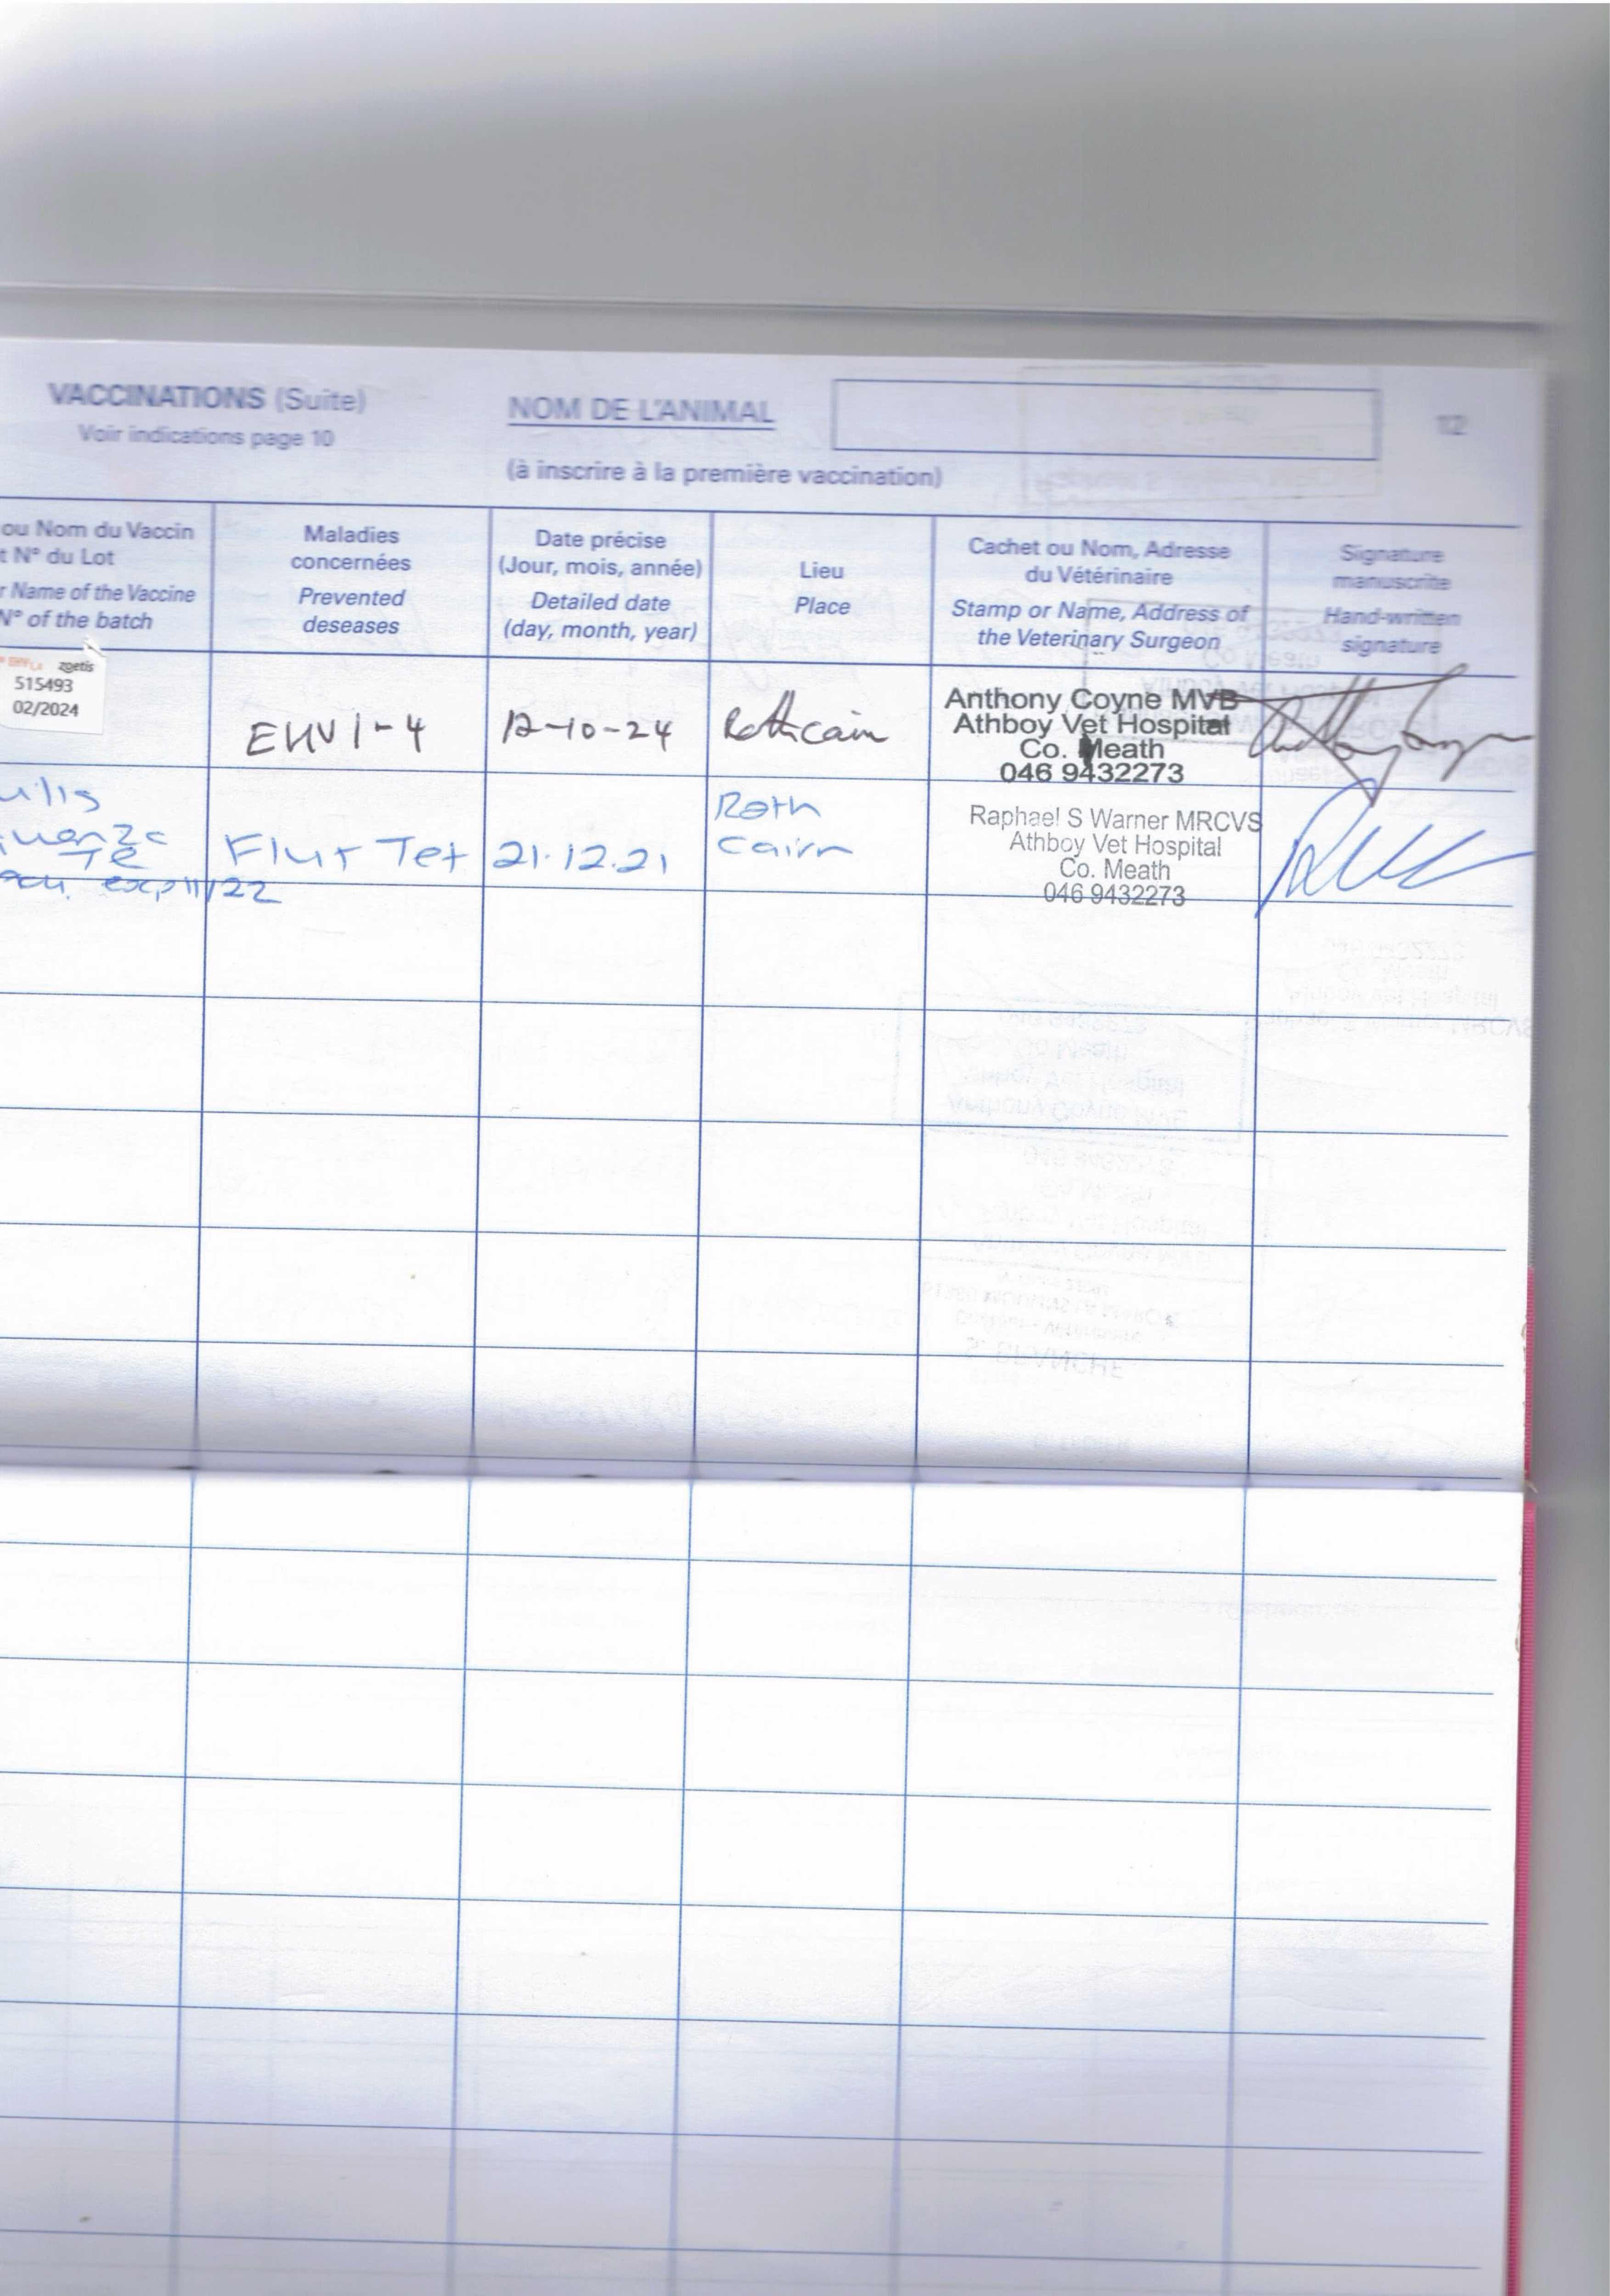 VACCINATIONS (Suite)
Voir indications page 10
NOM DE L'ANIMAL
(à inscrire à la première vaccination)
12
ou Nom du Vaccin
t N° du Lot
r Name of the Vaccine
N° of the batch
Maladies
concernées
Prevented
deseases
Date précise
(Jour, mois, année)
Detailed date
(day, month, year)
Lieu
Place
Cachet ou Nom, Adresse
du Vétérinaire
Stamp or Name, Address of
the Veterinary Surgeon
Signature
manuscrite
Hand-written
signature
EHV1,4 zoetis
515493
02/2024
EHV 1-4
12-10-24
Rathcairn
Anthony Coyne MVB
Athboy Vet Hospital
Co. Meath
046 9432273
uilis
uenza
Te
exp 11/22
Flu + Tet
21.12.21
Rath
Cairn
Raphael S Warner MRCVS
Athboy Vet Hospital
Co. Meath
046 9432273